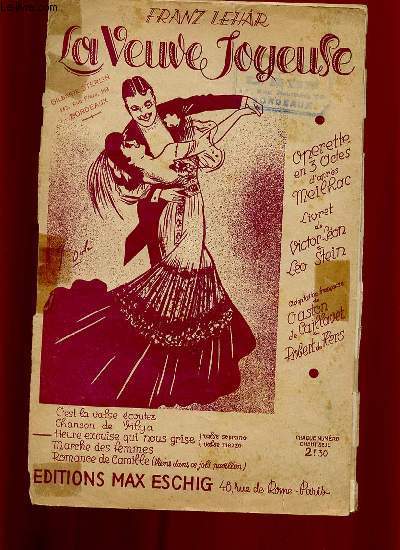 Le-livre.com
FRANZ LEHÁR
La Veuve Joyeuse
BORDEAUX
BORDEAUX
Opérette
en 3 Actes
d'après
Meilhac
Livret
de
Victor Léon
&
Léo Stein
Adaptation française
de
Gaston
de Caillavet
&
Robert de Flers
C'est la valse écoutez
Chanson de Vilya
Heure exquise qui nous grise { valse soprano
{ valse mezzo
Marche des femmes
Romance de Camille (Viens dans ce joli pavillon)
CHAQUE NUMÉRO
CHANT SEUL
2f30
EDITIONS MAX ESCHIG 48, rue de Rome - Paris